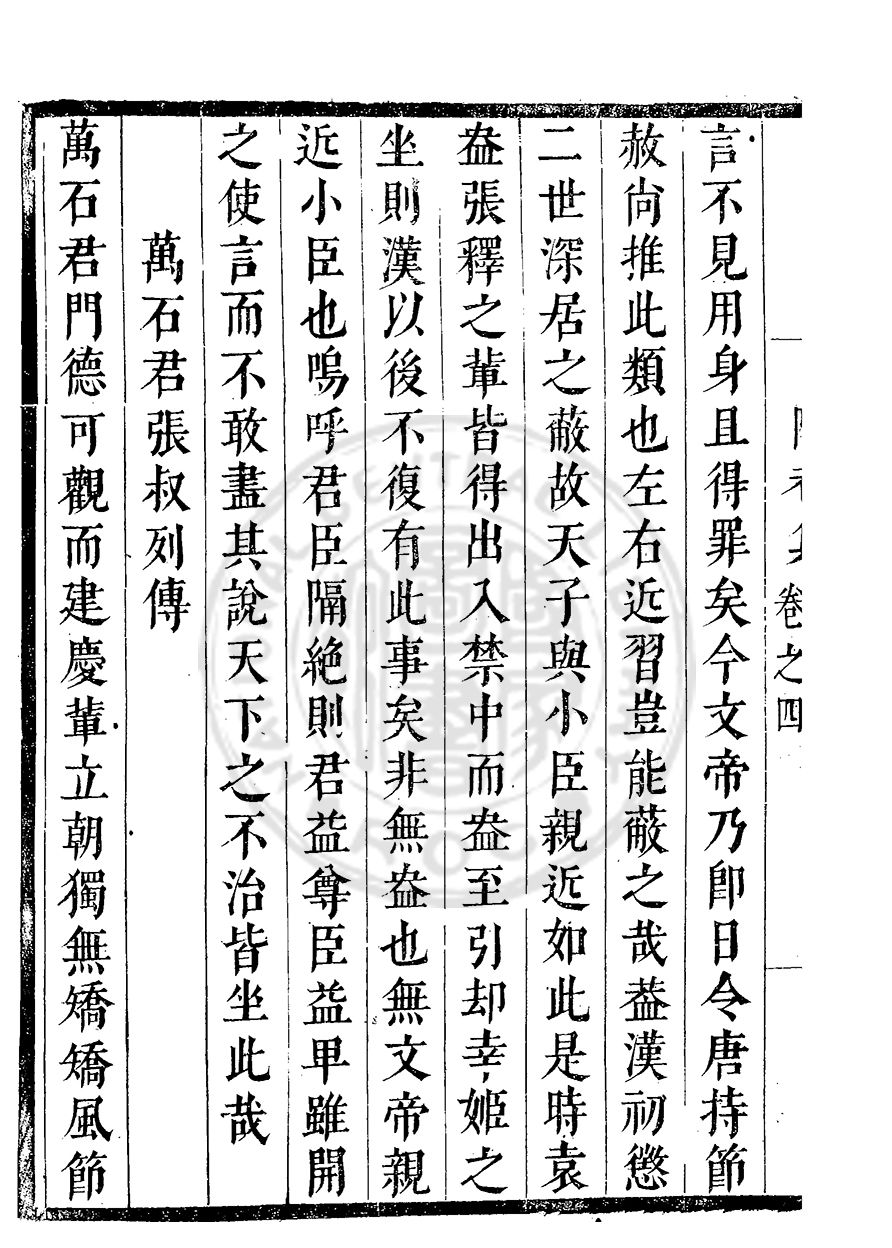 言不見用身且得罪矣今文帝乃卽日令唐持節
赦尙推此類也左右近習豈能蔽之哉葢漢初懲
二世深居之蔽故天子與小臣親近如此是時袁
盎張釋之輩皆得出入禁中而盎至引却幸姬之
坐則漢以後不復有此事矣非無盎也無文帝親
近小臣也嗚呼君臣隔絶則君益尊臣益卑雖開
之使言而不敢盡其說天下之不治皆坐此哉
萬石君張叔列傳
萬石君門德可觀而建慶輩立朝獨無矯矯風節
卷之四